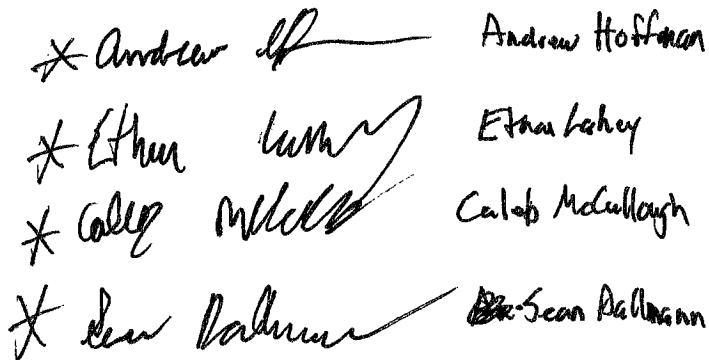 * Andrew Andrew Hoffman
* Ethan Ethan Lahey
* Caleb Caleb McCullough
* Sean Dallmann Sean Dallmann